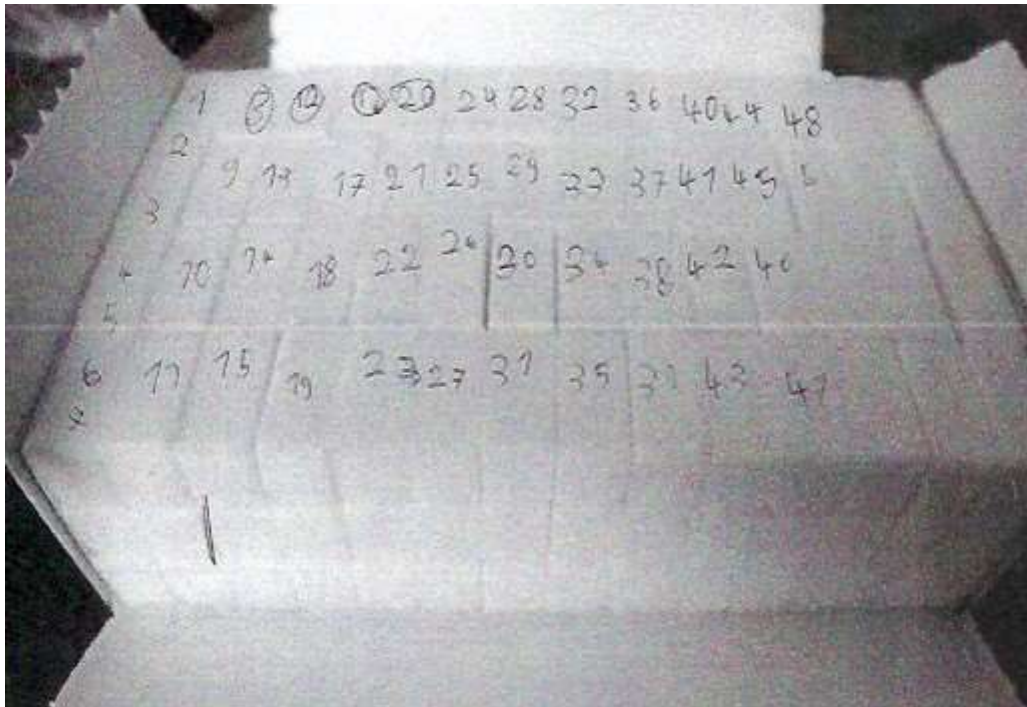 1 8 12 16 20 24 28 32 36 40 44 48
2
9 13 17 21 25 29 33 37 41 45
3
4 10 14 18 22 26 30 34 38 42 46
5
6 11 15 19 23 27 31 35 39 43 47